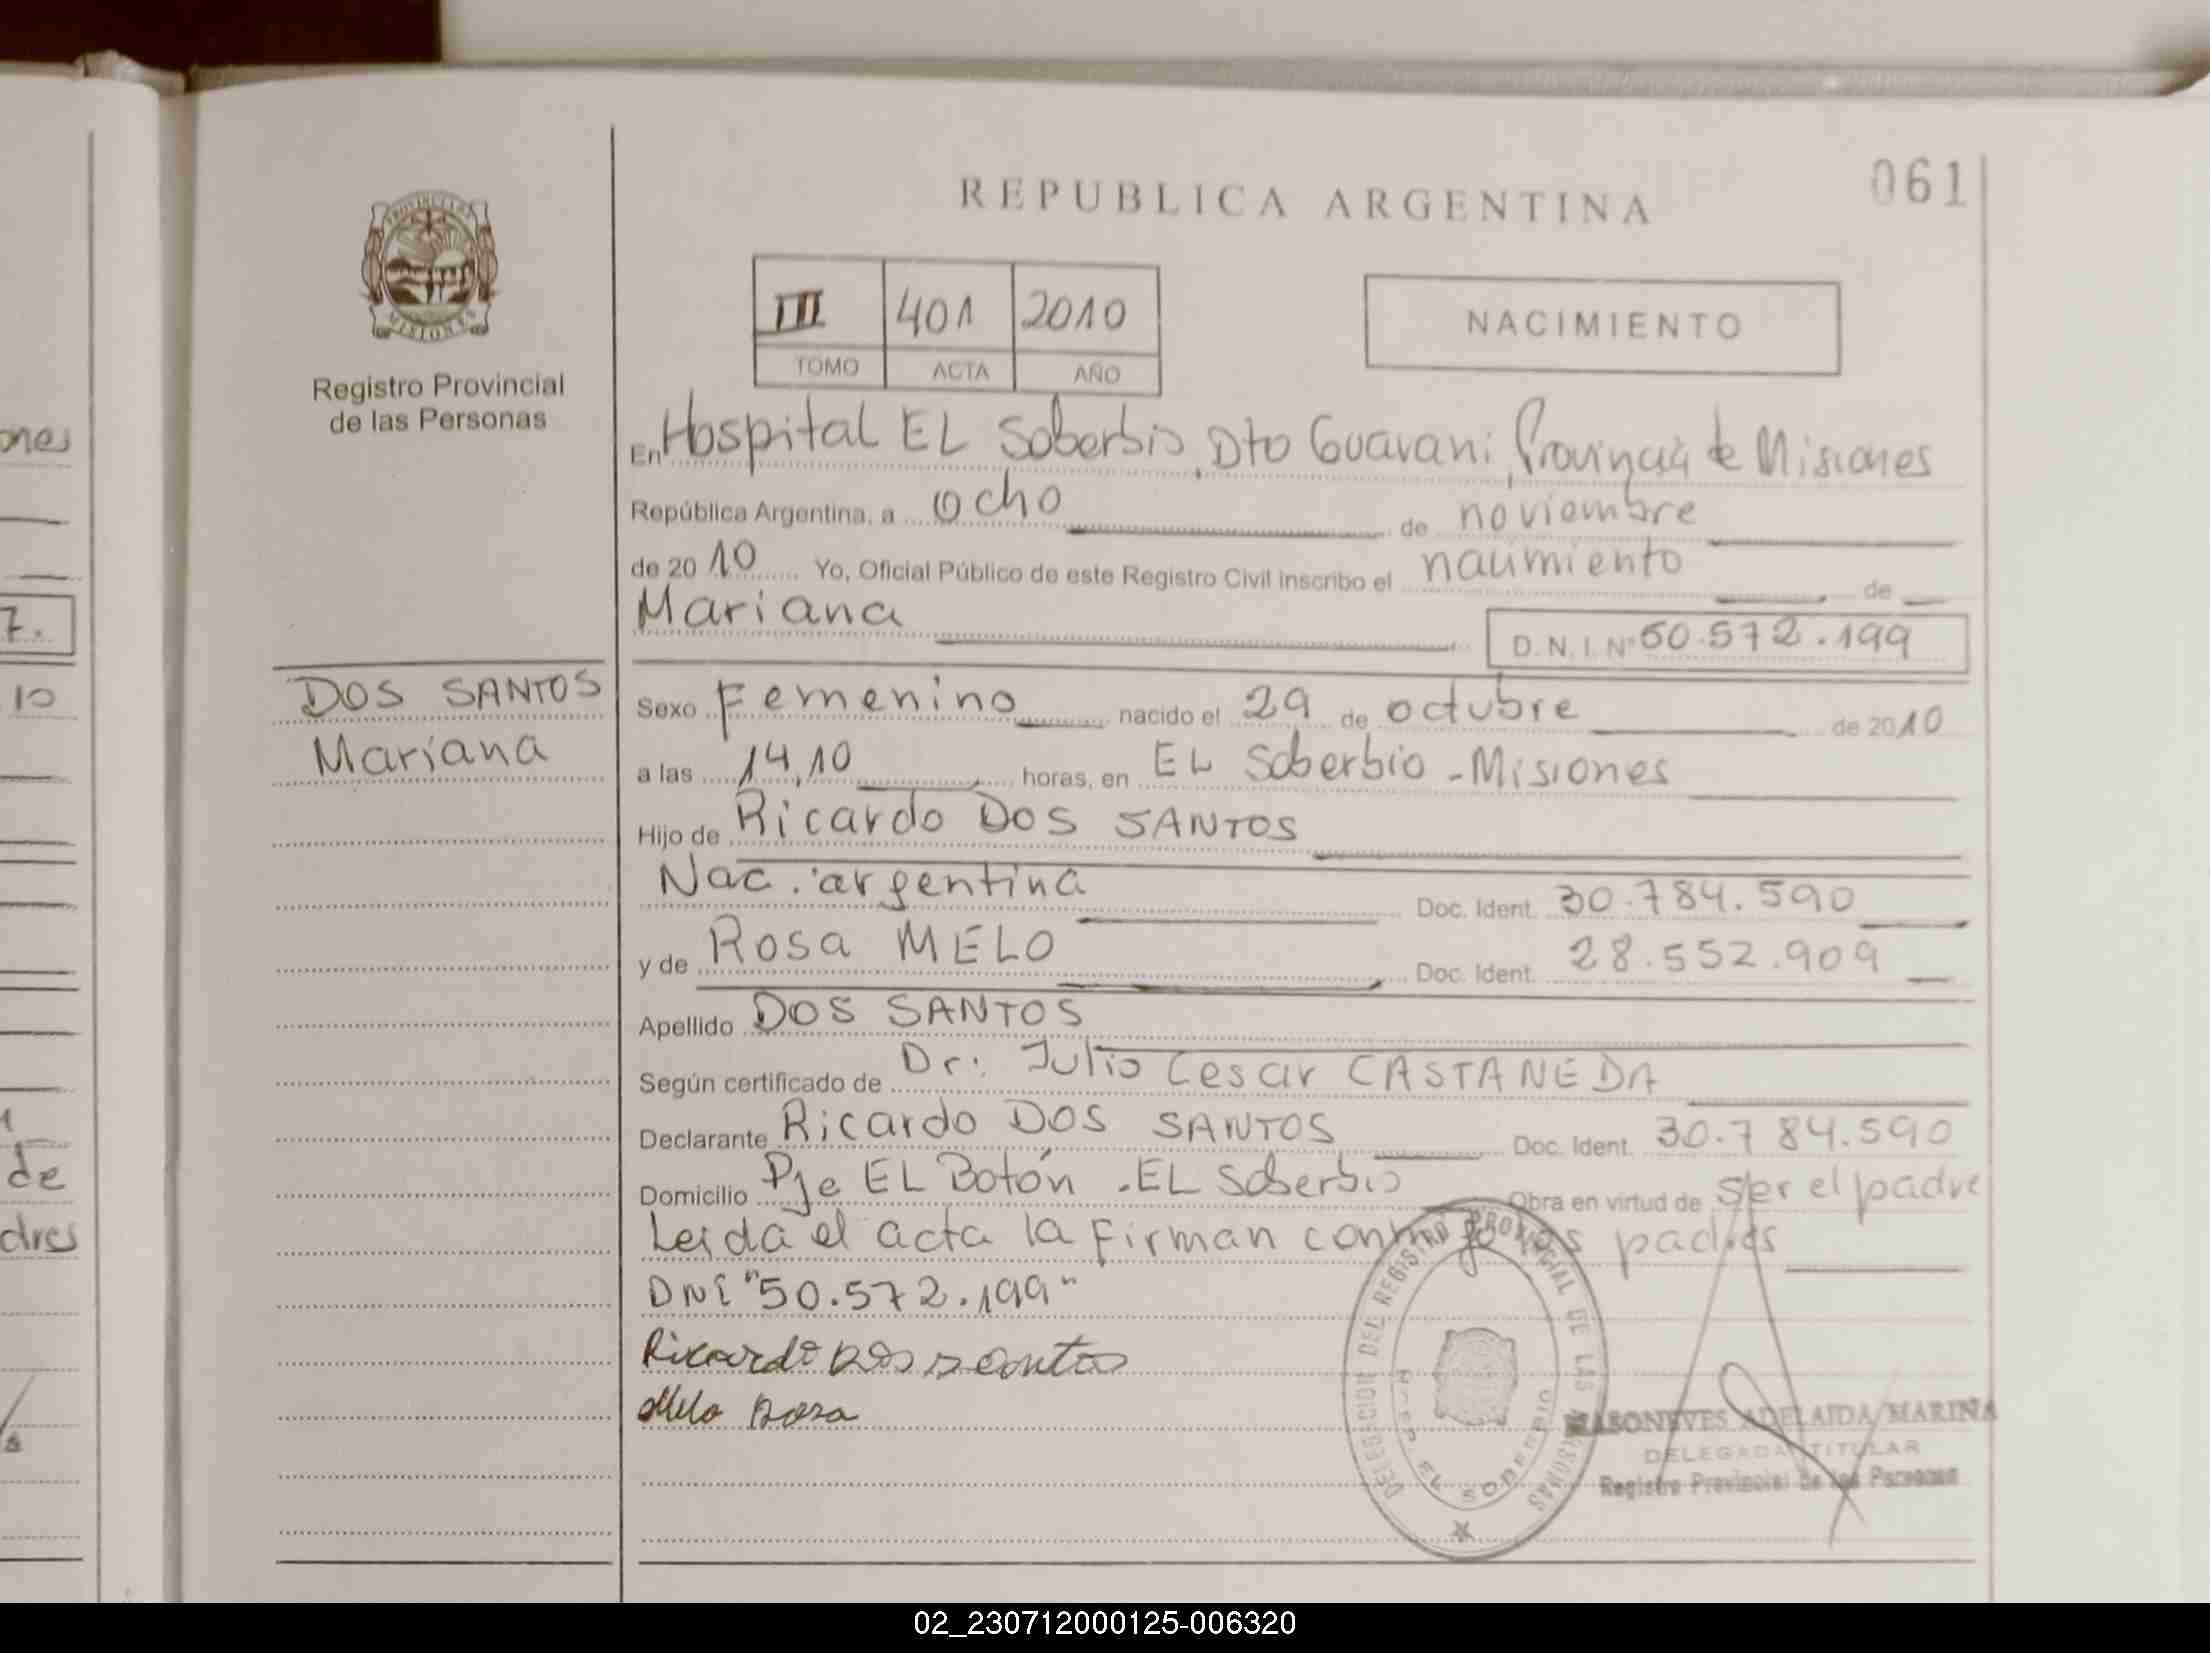 REPUBLICA ARGENTINA
061
PROVINCIA DE
MISIONES
Registro Provincial
de las Personas
III 401 2010
TOMO ACTA AÑO
NACIMIENTO
En Hospital EL Soberbio, Dto Guarani, Provincia de Misiones
República Argentina, a ocho de noviembre
de 2010 Yo, Oficial Público de este Registro Civil inscribo el nacimiento de
Mariana
D.N.I. Nº 50.572.199
DOS SANTOS
Mariana
Sexo Femenino nacido el 29 de octubre de 2010
a las 14,10 horas, en EL Soberbio - Misiones
Hijo de Ricardo DOS SANTOS
Nac. argentina Doc. Ident. 30.784.590
y de Rosa MELO Doc. Ident. 28.552.909
Apellido DOS SANTOS
Según certificado de Dr: Julio Cesar CASTANEDA
Declarante Ricardo DOS SANTOS Doc. Ident. 30.784.590
Domicilio Pje EL Botón - EL Soberbio Obra en virtud de ser el padre
Leida el acta la firman conmigo los padres
DNI "50.572.199"
Ricardo Dos santos
Melo Rosa
DELEGACION DEL REGISTRO PROVINCIAL DE LAS PERSONAS
EL SOBERBIO
ADELAIDA MARINA
DELEGADA TITULAR
Registro Provincial de las Personas
ones
7.
10
1
de
dres
02_230712000125-006320